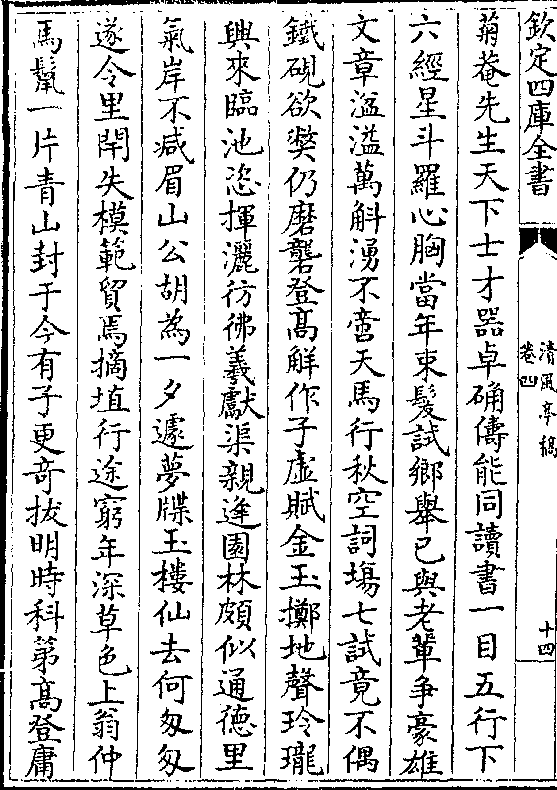 欽定四庫全書
清風亭稿
卷四
十四
菊菴先生天下士才器卓礭儔能同讀書一目五行下
六經星斗羅心胸當年束髮試鄉舉已與老輩爭豪雄
文章溢溢萬斛湧不啻天馬行秋空詞塲七試竟不偶
鐵硯欲獘仍磨礱登髙解作子虛賦金玉擲地聲玲瓏
興來臨池恣揮灑彷彿羲獻渠親逢園林頗似通德里
氣岸不减眉山公胡為一夕遽夢牒玉樓仙去何匆匆
遂令里閈失模範貿焉摘埴行途窮年深草色上翁仲
馬鬛一片青山封于今有子更奇拔明時科第髙登庸